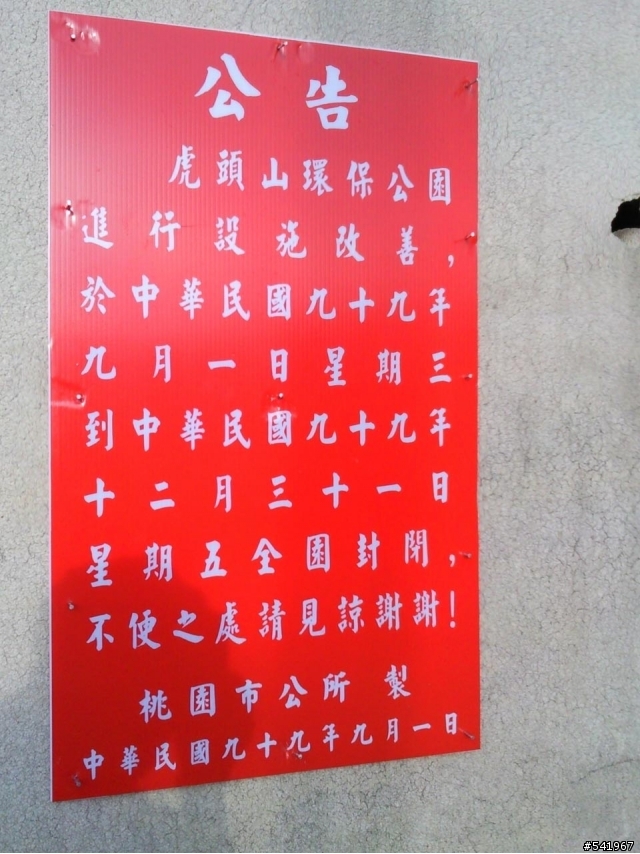 公告
虎頭山環保公園
進行設施改善,
於中華民國九十九年
九月一日星期三
到中華民國九十九年
十二月三十一日
星期五全園封閉,
不便之處請見諒謝謝!
桃園市公所 製
中華民國九十九年九月一日
#541967